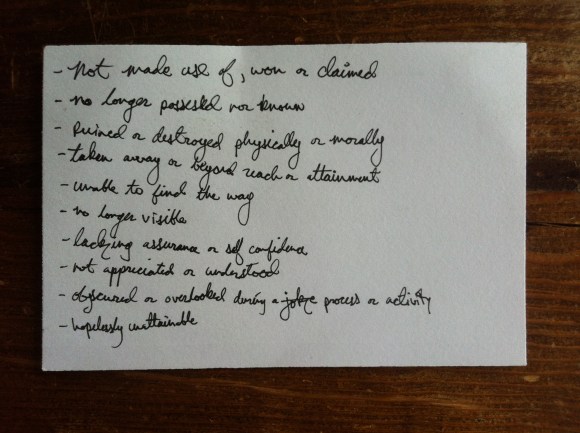 - Not made use of, won or claimed
- no longer possessed nor known
- Ruined or destroyed physically or morally
- taken away or beyond reach or attainment
- unable to find the way
- no longer visible
- lacking assurance or self confidence
- not appreciated or understood
- obscured or overlooked during a process or activity
- hopelessly unattainable